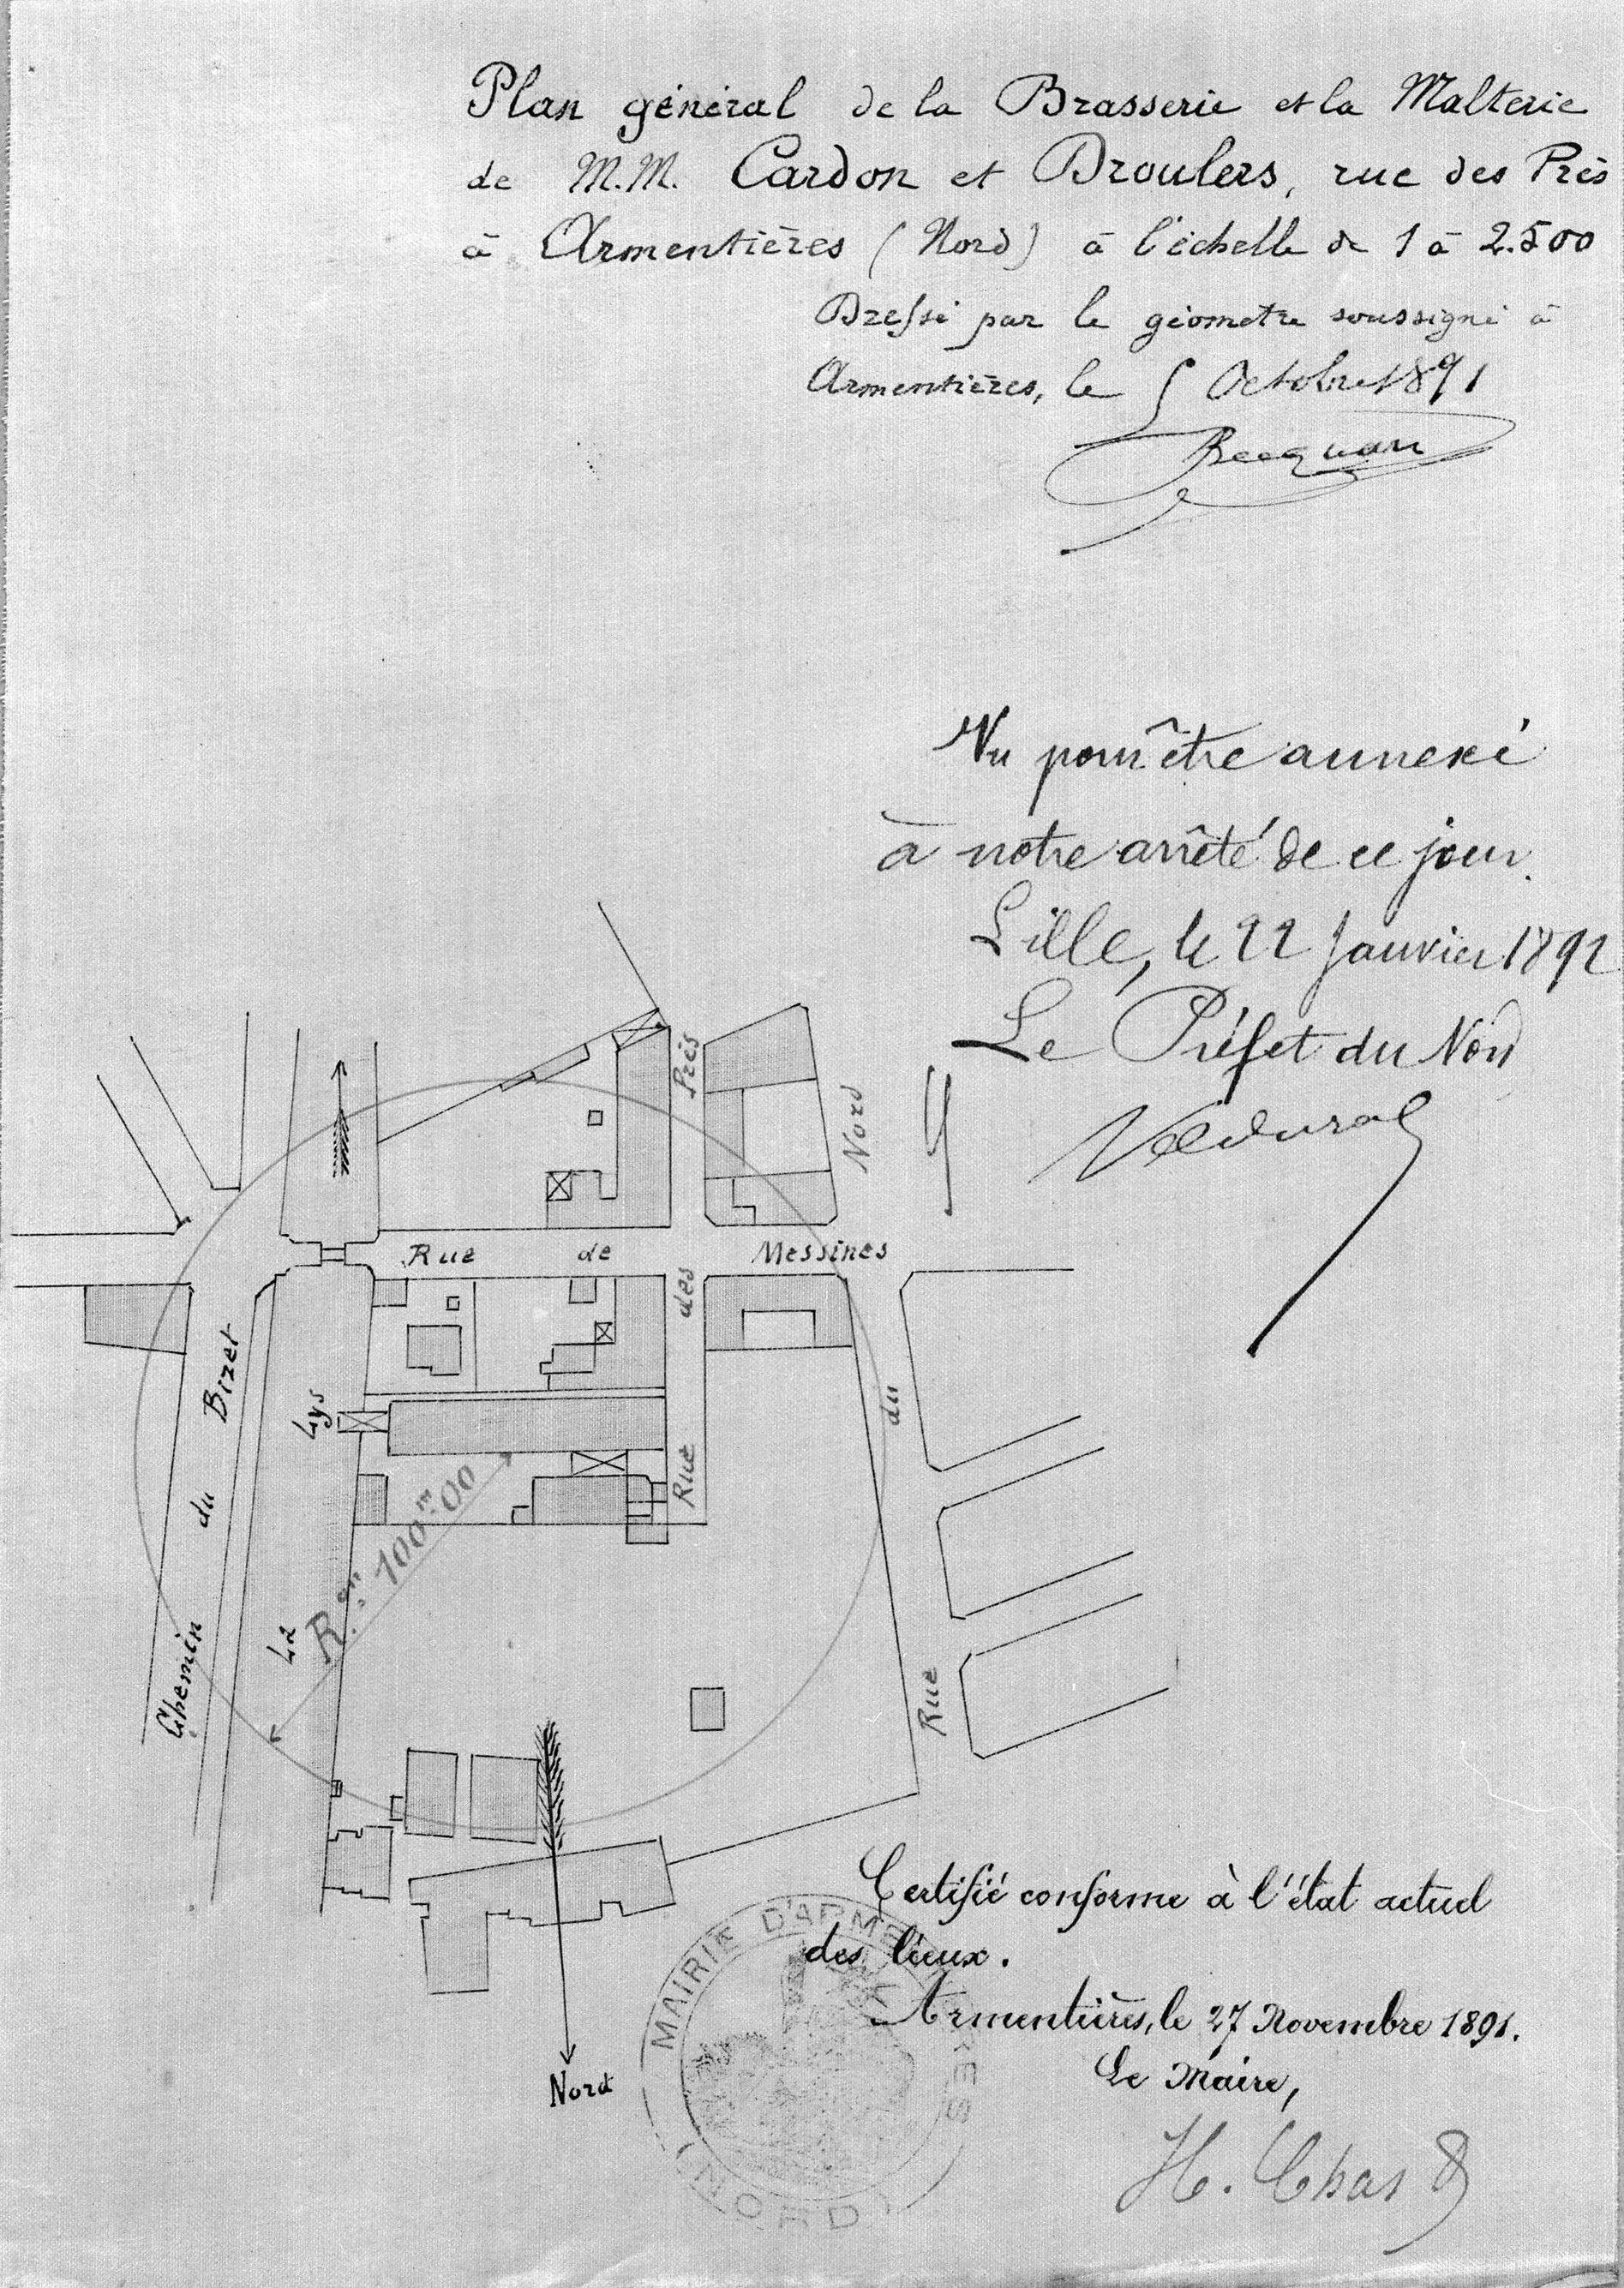 Plan général de la Brasserie et la Malterie
de M.M. Cardon et Droulers, rue des Près
à Armentières (Nord) à l'échelle de 1 à 2.500
Dressé par le géometre soussigné à
Armentières, le 5 Octobre 1891
Vu pour être annexé
à notre arrêté de ce jour.
Lille, le 22 Janvier 1892
Le Préfet du Nord
Rue des Près
Rue de Messines
Rue du Nord
Chemin du Bizet
La Lys
R.on 100m.00
Nord
Certifié conforme à l'état actuel
des lieux.
Armentières, le 27 Novembre 1891.
Le Maire,
H. Chas
MAIRIE D'ARMENTIÈRES
(NORD)